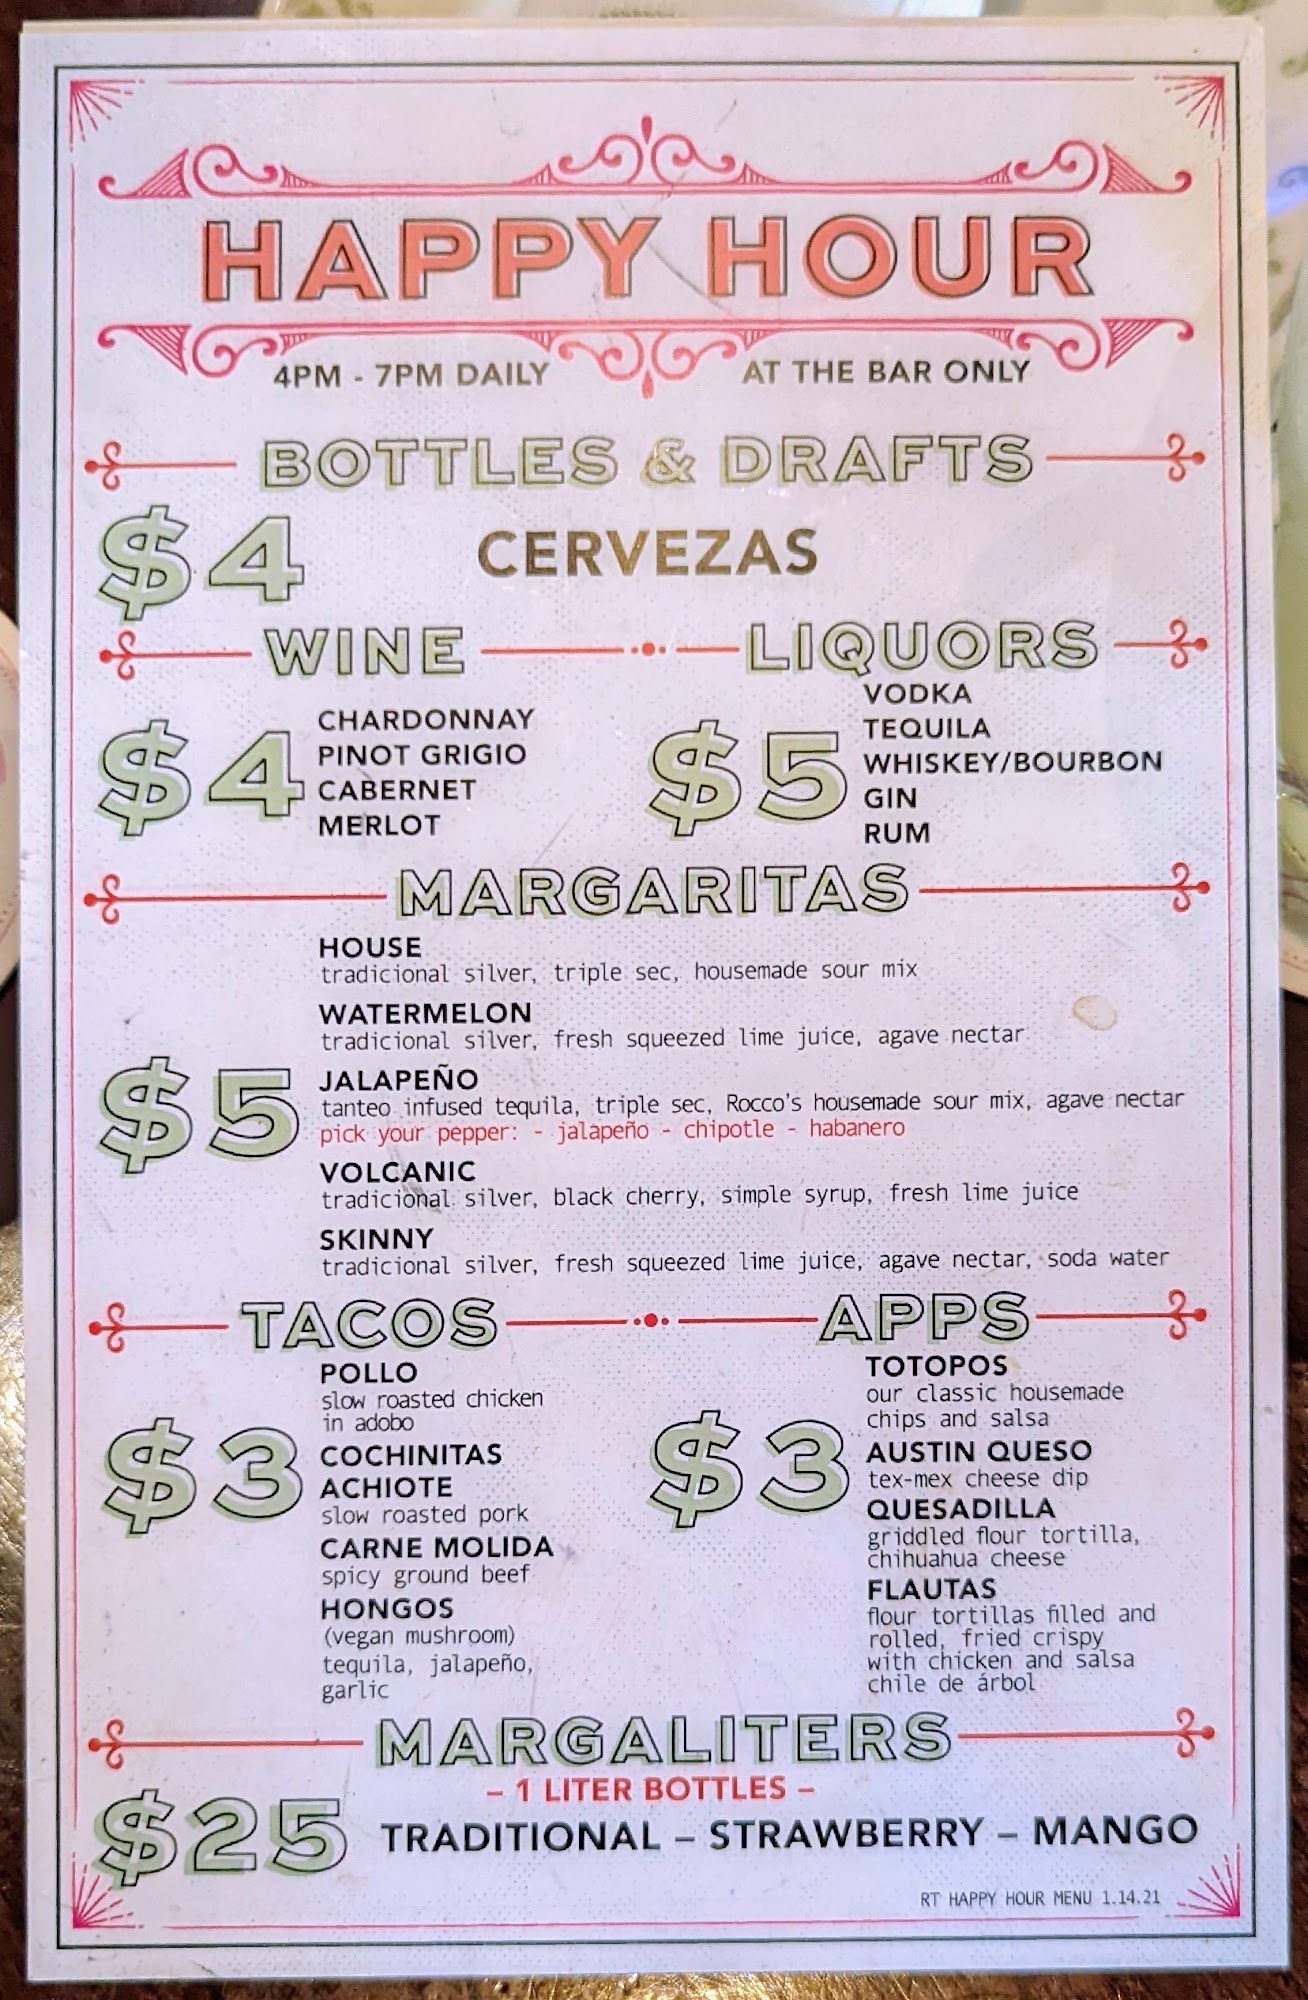 HAPPY HOUR
4PM - 7PM DAILY AT THE BAR ONLY
BOTTLES & DRAFTS
$4 CERVEZAS
WINE
$4
CHARDONNAY
PINOT GRIGIO
CABERNET
MERLOT
LIQUORS
$5
VODKA
TEQUILA
WHISKEY/BOURBON
GIN
RUM
MARGARITAS
$5
HOUSE
tradicional silver, triple sec, housemade sour mix
WATERMELON
tradicional silver, fresh squeezed lime juice, agave nectar
JALAPEÑO
tanteo infused tequila, triple sec, Rocco's housemade sour mix, agave nectar
pick your pepper: - jalapeño - chipotle - habanero
VOLCANIC
tradicional silver, black cherry, simple syrup, fresh lime juice
SKINNY
tradicional silver, fresh squeezed lime juice, agave nectar, soda water
TACOS
$3
POLLO
slow roasted chicken
in adobo
COCHINITAS
ACHIOTE
slow roasted pork
CARNE MOLIDA
spicy ground beef
HONGOS
(vegan mushroom)
tequila, jalapeño,
garlic
APPS
$3
TOTOPOS
our classic housemade
chips and salsa
AUSTIN QUESO
tex-mex cheese dip
QUESADILLA
griddled flour tortilla,
chihuahua cheese
FLAUTAS
flour tortillas filled and
rolled, fried crispy
with chicken and salsa
chile de árbol
MARGALITERS
– 1 LITER BOTTLES –
$25 TRADITIONAL – STRAWBERRY – MANGO
RT HAPPY HOUR MENU 1.14.21